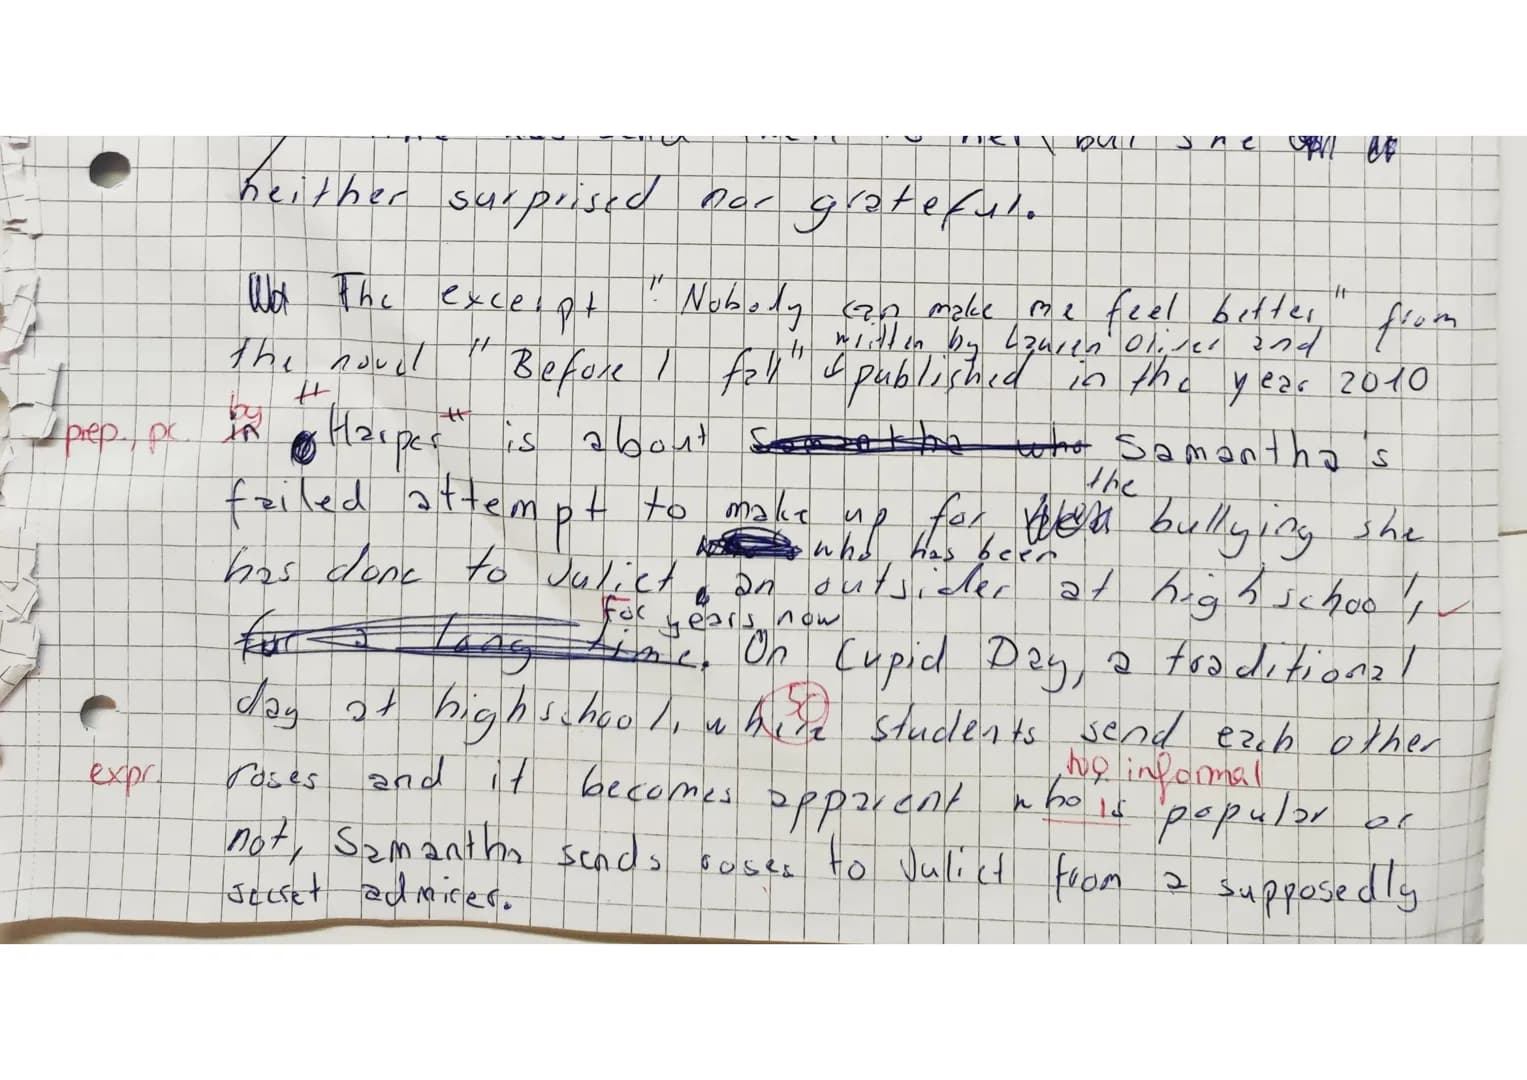 her, but she
neither surprised nor grateful.
The excerpt "Nobody can make me feel better" from
written by Lauren Oliver and
the novel "Before I fall" published in the year 2010
by
prep., pr. in "Harper" is about Samantha's
the
failed attempt to make up for bullying she
who has been
has done to Juliet, an outsider at highschool,
For years now
for a long time. On Cupid Day, a traditional
day at highschool, where students send each other
too informal
expr. roses and it becomes apparent who is popular or
not, Samantha sends roses to Juliet from a supposedly
secret admirer.